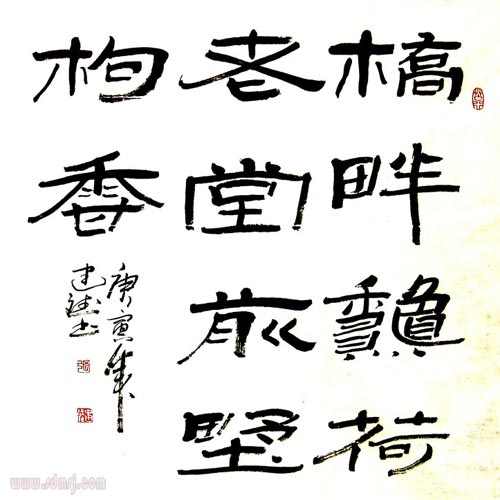 橋畔龝荷
老堂前野
枸香
庚寅年
www.sdmsj.com